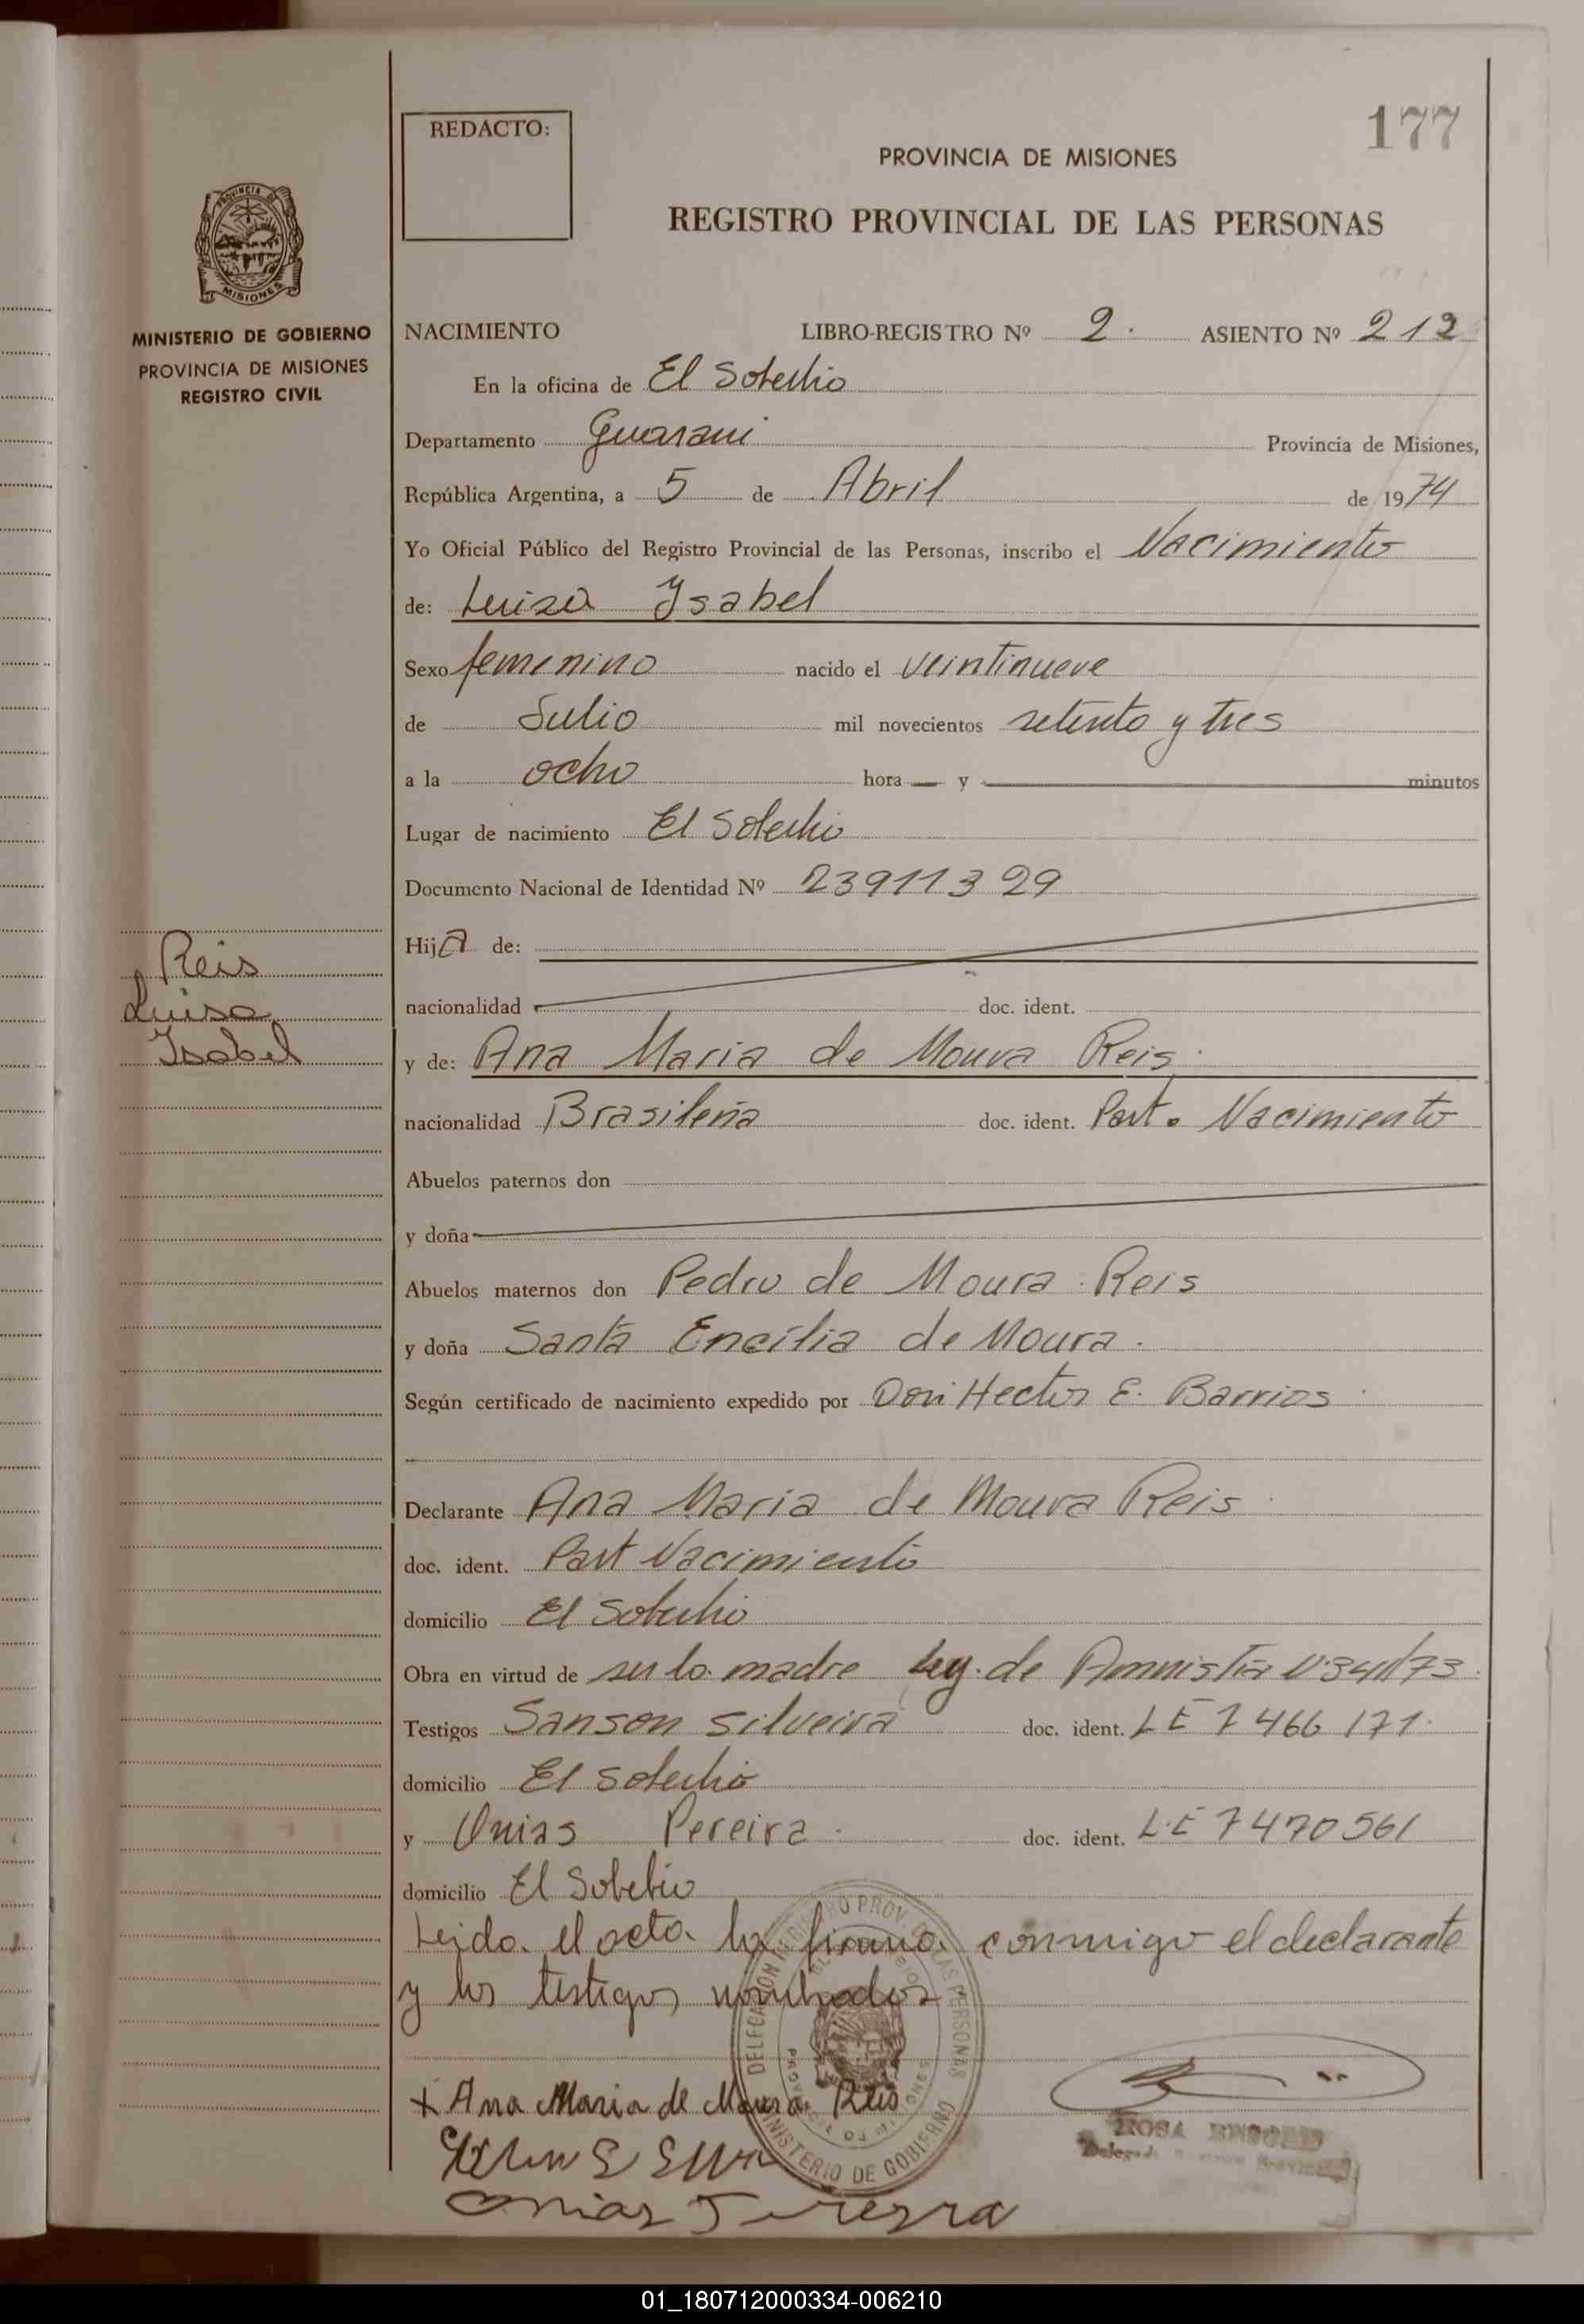 177
REDACTO:
PROVINCIA DE MISIONES
REGISTRO PROVINCIAL DE LAS PERSONAS
PROVINCIA DE
MISIONES
MINISTERIO DE GOBIERNO
PROVINCIA DE MISIONES
REGISTRO CIVIL
NACIMIENTO LIBRO-REGISTRO Nº 2. ASIENTO Nº 212
En la oficina de El Soberbio
Departamento Guarani Provincia de Misiones,
República Argentina, a 5 de Abril de 1974
Yo Oficial Público del Registro Provincial de las Personas, inscribo el Nacimiento
de: Luisa Ysabel
Sexo femenino nacido el veintinueve
de Julio mil novecientos setenta y tres
a la ocho hora — y — minutos
Lugar de nacimiento El Soberbio
Documento Nacional de Identidad Nº 23911329
Hija de:
Reis
Luisa
Isabel
nacionalidad doc. ident.
y de: Ana Maria de Moura Reis.
nacionalidad Brasileña doc. ident. Part. Nacimiento
Abuelos paternos don
y doña
Abuelos maternos don Pedro de Moura Reis
y doña Santa Encilia de Moura.
Según certificado de nacimiento expedido por Don Hector E. Barrios
Declarante Ana Maria de Moura Reis
doc. ident. Part Nacimiento
domicilio El Soberbio
Obra en virtud de ser la madre Ley de Amnistia
Testigos Sanson Silveira doc. ident. LE 7466171.
domicilio El Soberbio
y Onias Pereira doc. ident. L.E 7470561
domicilio El Soberbio
Leida el acta la firma conmigo el declarante
y los testigos nombrados
DELEGACION REGISTRO PROV. DE LAS PERSONAS
MINISTERIO DE GOBIERNO
+ Ana Maria de Moura Reis
ROSA
01_180712000334-006210